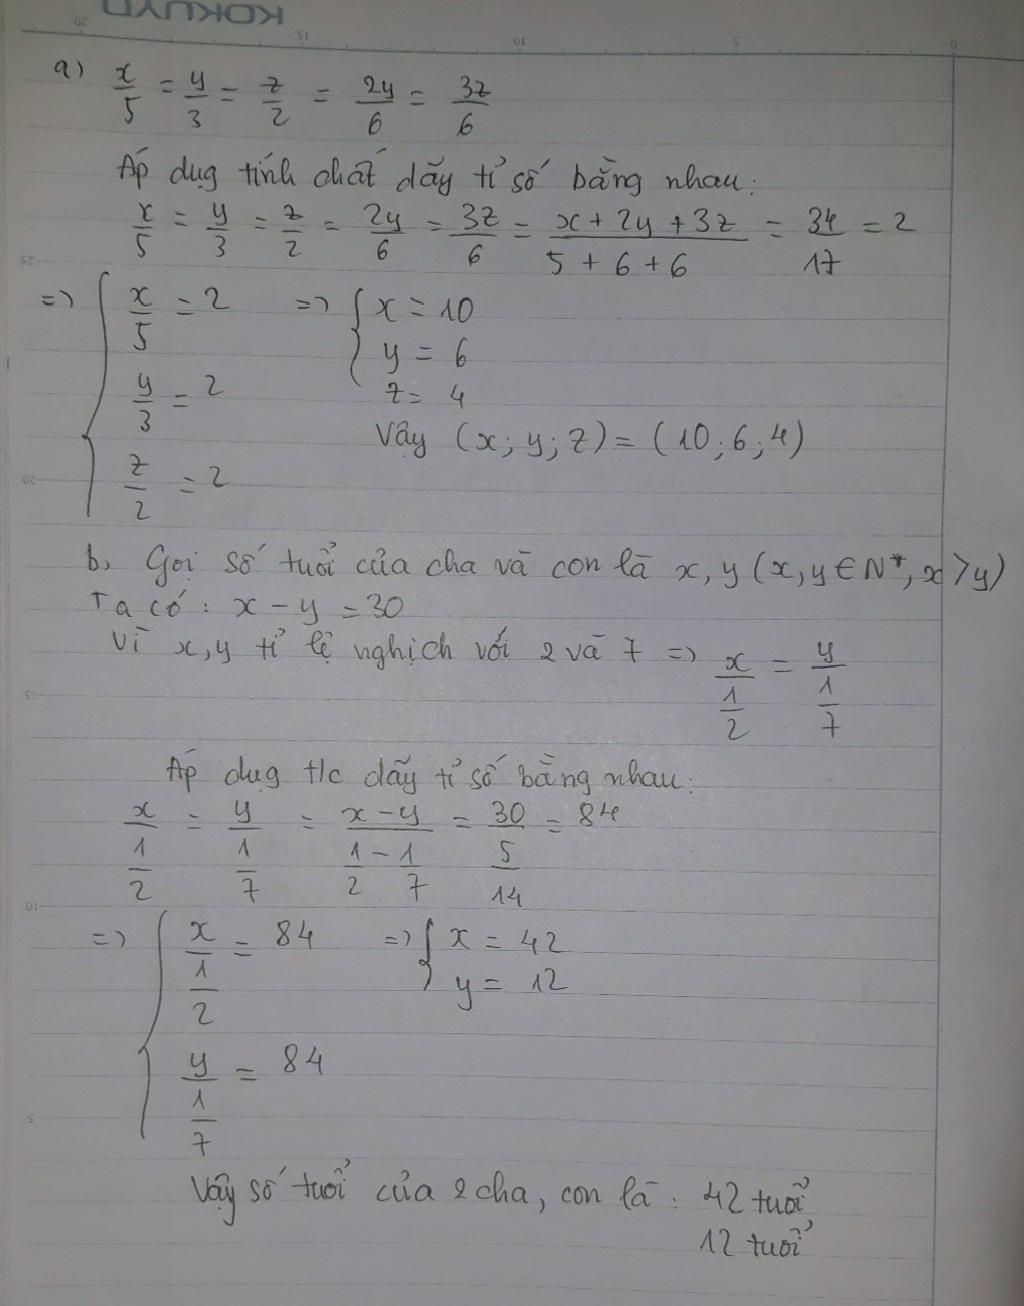 KOKUYO
20 15 10 5 0
a) x/5 = y/3 = z/2 = 2y/6 = 3z/6
Áp dụg tính chất dãy tỉ số bằng nhau:
x/5 = y/3 = z/2 = 2y/6 = 3z/6 = (x + 2y + 3z)/(5 + 6 + 6) = 34/17 = 2
25
=> { x/5 = 2 => { x = 10
y = 6
y/3 = 2 z = 4
Vậy (x; y; z) = (10; 6; 4)
z/2 = 2
20
b, Gọi số tuổi của cha và con là x, y (x, y ∈ N*, x > y)
Ta có: x - y = 30
Vì x, y tỉ lệ nghịch với 2 và 7 => x/(1/2) = y/(1/7)
15
Áp dụg t/c dãy tỉ số bằng nhau:
x/(1/2) = y/(1/7) = (x - y)/(1/2 - 1/7) = 30/(5/14) = 84
10
=> { x/(1/2) = 84 => { x = 42
y = 12
y/(1/7) = 84
5
Vậy số tuổi của 2 cha, con là: 42 tuổi
12 tuổi